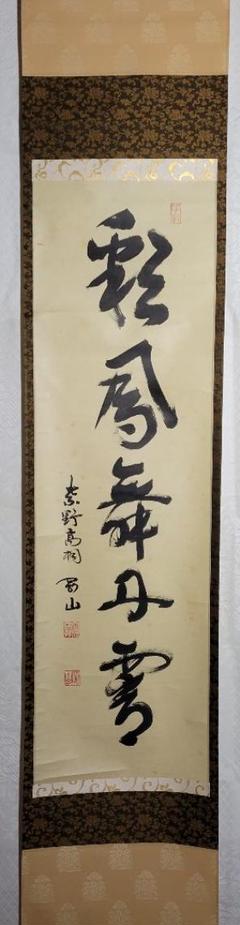 彩鳳舞丹霄
紫野高桐 宗山